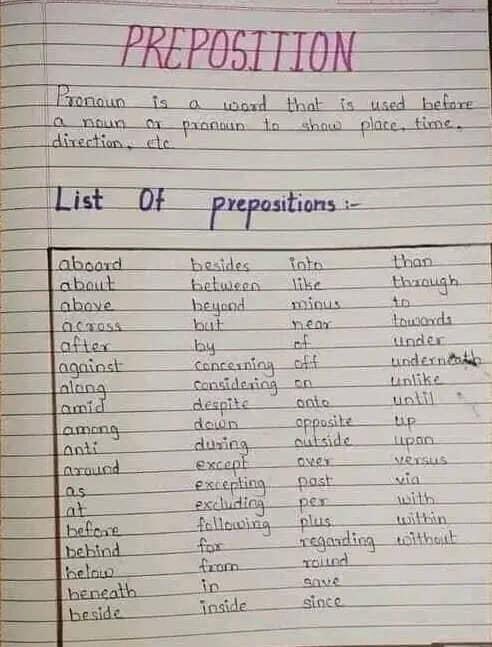 PREPOSITION
Pronoun is a word that is used before
a noun or pronoun to show place, time,
direction, etc
List Of prepositions :-
aboard besides into than
about between like through
above beyond minus to
across but near towards
after by of under
against concerning off underneath
along considering on unlike
amid despite onto until
among down opposite up
anti during outside upon
around except over versus
as excepting past via
at excluding per with
before following plus within
behind for regarding without
below from round
beneath in save
beside inside since